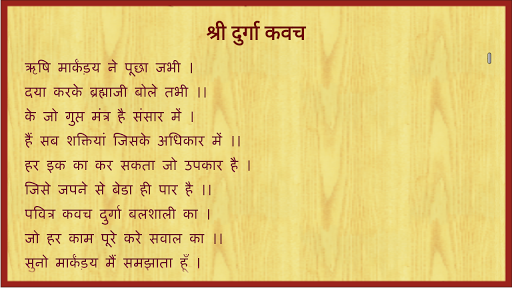 श्री दुर्गा कवच
ऋषि मार्कंडय ने पूछा जभी ।
दया करके ब्रह्माजी बोले तभी ।।
के जो गुप्त मंत्र है संसार में ।
हैं सब शक्तियां जिसके अधिकार में ।।
हर इक का कर सकता जो उपकार है ।
जिसे जपने से बेडा ही पार है ।।
पवित्र कवच दुर्गा बलशाली का ।
जो हर काम पूरे करे सवाल का ।।
सुनो मार्कंडय मैं समझाता हूँ ।